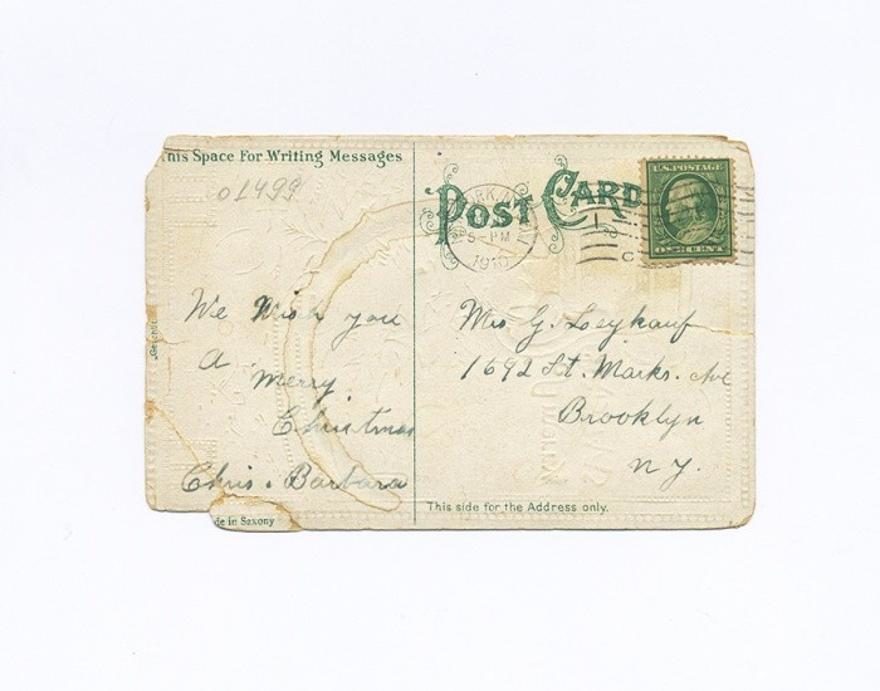 This Space For Writing Messages
01499
We Wish you
A
Merry
Christmas
Chris. Barbara
de in Saxony
POST CARD
5-PM
1910
U.S. POSTAGE
ONE CENT
Mrs G. Loeykauf
1692 St. Marks. Ave
Brooklyn
N Y.
This side for the Address only.